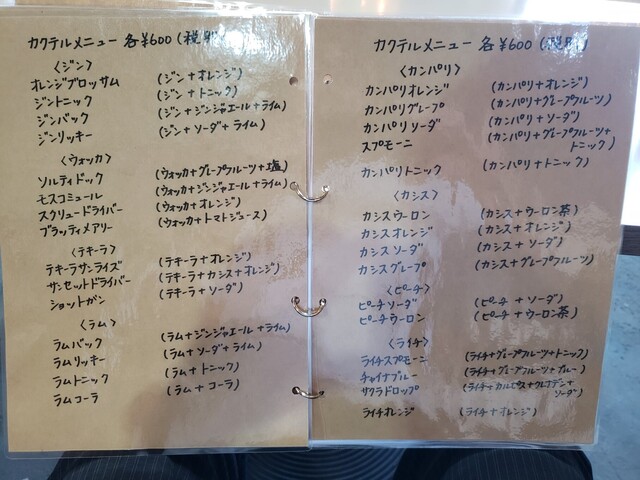 カクテルメニュー 各¥600(税別)
〈ジン〉
オレンジブロッサム (ジン+オレンジ)
ジントニック (ジン+トニック)
ジンバック (ジン+ジンジャエール+ライム)
ジンリッキー (ジン+ソーダ+ライム)
〈ウォッカ〉
ソルティドック (ウォッカ+グレープフルーツ+塩)
モスコミュール (ウォッカ+ジンジャエール+ライム)
スクリュードライバー (ウォッカ+オレンジ)
ブラッティメアリー (ウォッカ+トマトジュース)
〈テキーラ〉
テキーラサンライズ (テキーラ+オレンジ)
サンセットドライバー (テキーラ+カシス+オレンジ)
ショットガン (テキーラ+ソーダ)
〈ラム〉
ラムバック (ラム+ジンジャエール+ライム)
ラムリッキー (ラム+ソーダ+ライム)
ラムトニック (ラム+トニック)
ラムコーラ (ラム+コーラ)
カクテルメニュー 各¥600(税別)
〈カンパリ〉
カンパリオレンジ (カンパリ+オレンジ)
カンパリグレープ (カンパリ+グレープフルーツ)
カンパリソーダ (カンパリ+ソーダ)
スプモーニ (カンパリ+グレープフルーツ+
トニック)
カンパリトニック (カンパリ+トニック)
〈カシス〉
カシスウーロン (カシス+ウーロン茶)
カシスオレンジ (カシス+オレンジ)
カシスソーダ (カシス+ソーダ)
カシスグレープ (カシス+グレープフルーツ)
〈ピーチ〉
ピーチソーダ (ピーチ+ソーダ)
ピーチウーロン (ピーチ+ウーロン茶)
〈ライチ〉
ライチスプモーニ (ライチ+グレープフルーツ+トニック)
チャイナブルー (ライチ+グレープフルーツ+ブルー)
サクラドロップ (ライチ+カルピス+グレナデン+
ソーダ)
ライチオレンジ (ライチ+オレンジ)